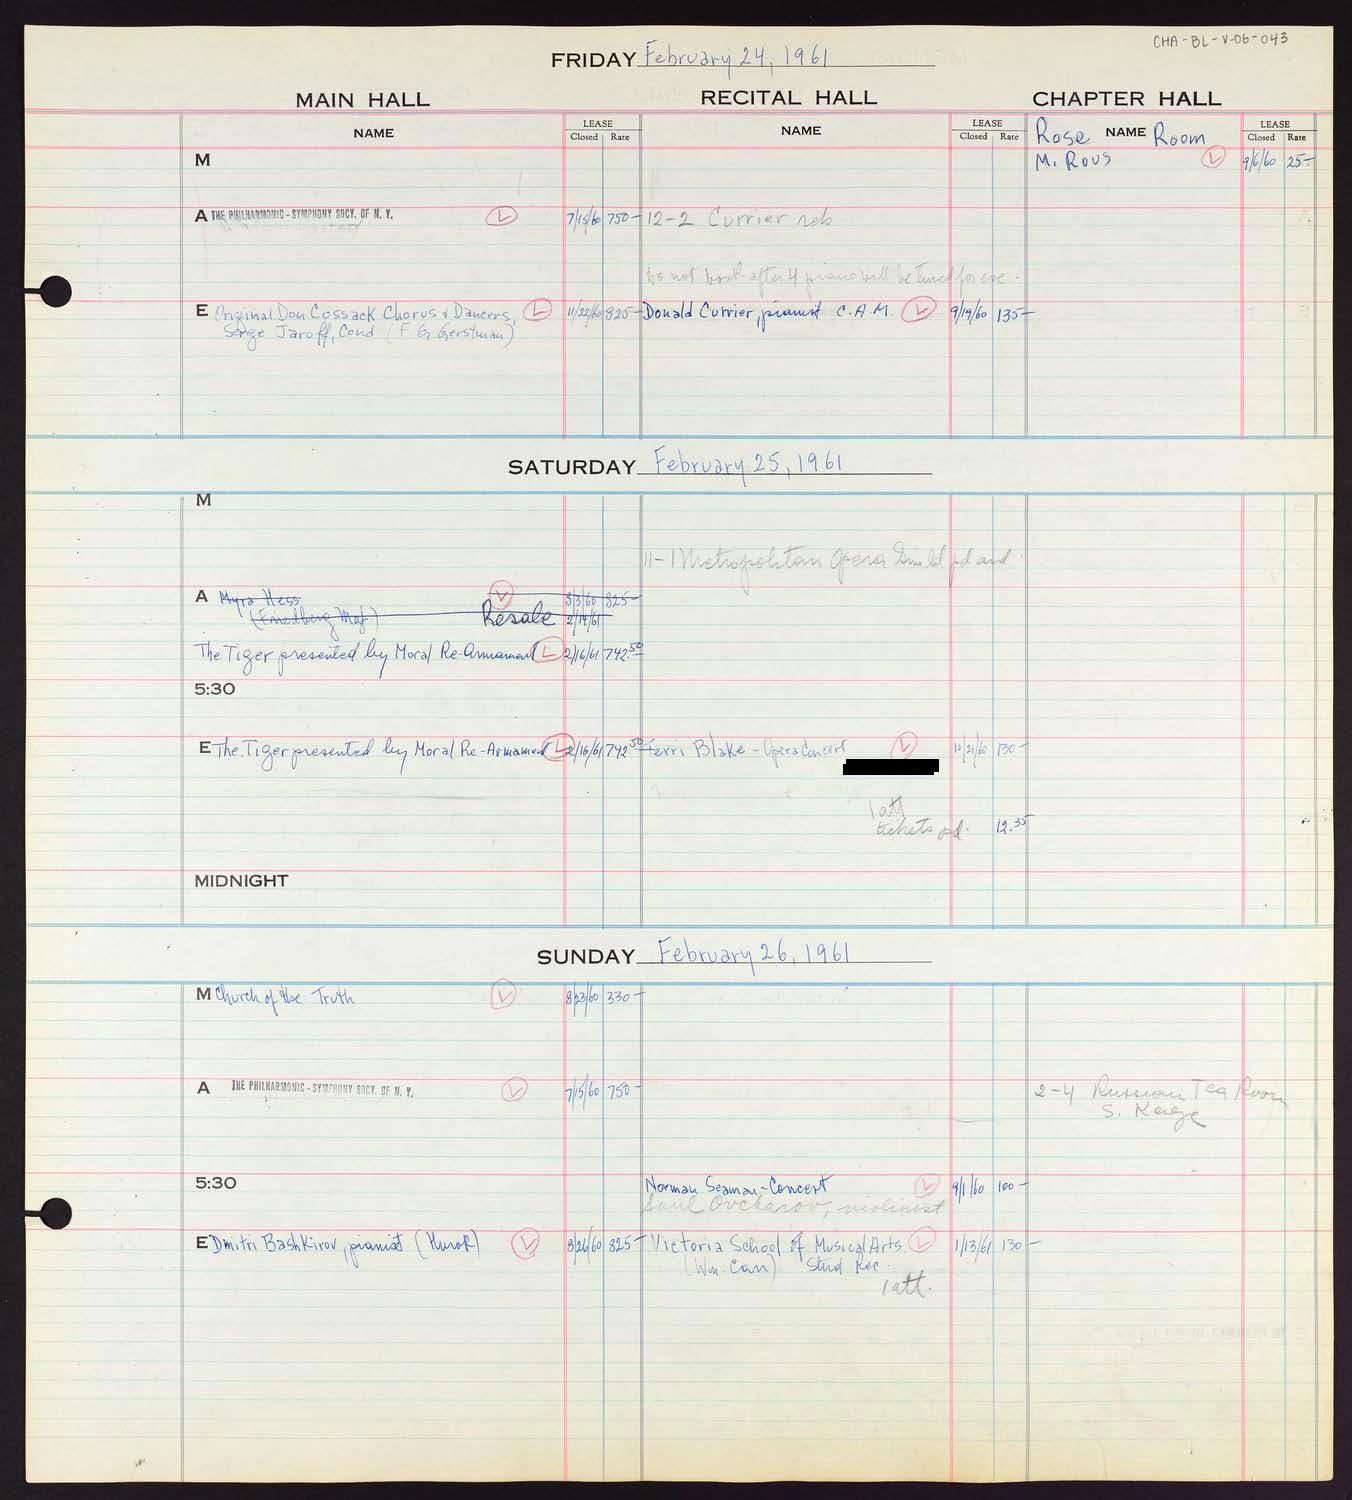 CHA-BL-V-06-043
FRIDAY February 24, 1961
MAIN HALL RECITAL HALL CHAPTER HALL
NAME LEASE Closed Rate NAME LEASE Closed Rate Rose NAME Room LEASE Closed Rate
M M. Rous L 9/6/60 25-
A THE PHILHARMONIC-SYMPHONY SOCY. OF N. Y. L 7/15/60 750- 12-2 Currier reh
Do not book after 4 piano will be tuned for eve.
E Original Don Cossack Chorus & Dancers, L 11/22/60 825- Donald Currier, pianist C.A.M. L 9/19/60 135-
Serge Jaroff, Cond (F G. Gerstman)
SATURDAY February 25, 1961
M
11-1 Metropolitan Opera Guild pd
A Myra Hess L 3/3/60 825-
(Friedberg Mgt) Resale 2/14/61
The Tiger presented by Moral Re-Armament L 2/16/61 742.50
5:30
E The Tiger presented by Moral Re-Armament L 2/16/61 742.50 Terri Blake - Opera Concert L 10/21/60 130-
1 att
tickets pd. 12.35
MIDNIGHT
SUNDAY February 26, 1961
M Church of the Truth L 8/23/60 330-
A THE PHILHARMONIC-SYMPHONY SOCY. OF N. Y. L 7/15/60 750- 2-4 Russian Tea Room
S. Kaye
5:30 Norman Seaman-Concert L 9/1/60 100-
Saul Ovcharov, violinist
E Dmitri Bashkirov, pianist (Hurok) L 8/26/60 825- Victoria School of Musical Arts L 1/13/61 130-
(Wm. Carr) Stud Rec.
1 att.